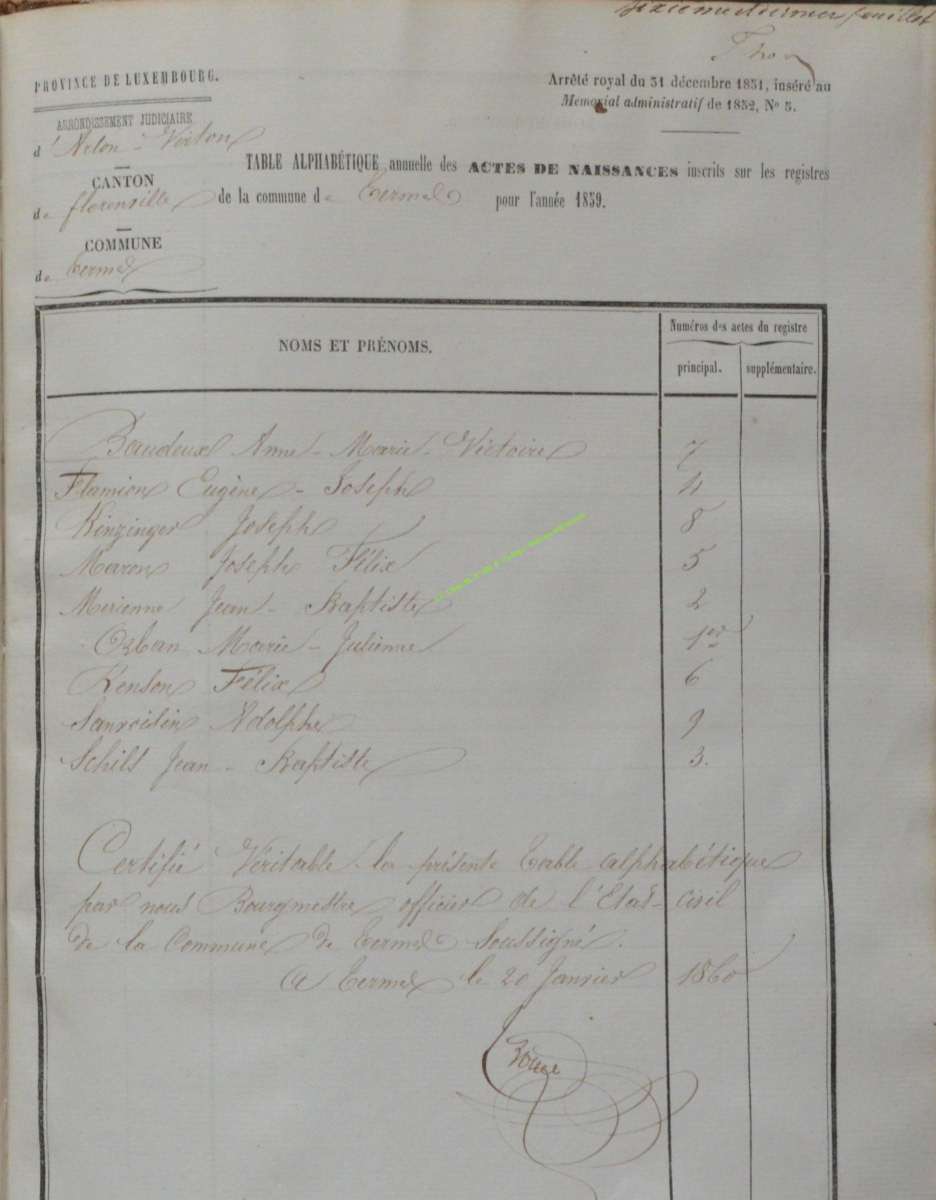 sixième et dernier feuillet
PROVINCE DE LUXEMBOURG.
Arrêté royal du 31 décembre 1851, inséré au
Memorial administratif de 1852, No 5.
ARRONDISSEMENT JUDICIAIRE
d'Arlon - Virton
TABLE ALPHABÉTIQUE annuelle des ACTES DE NAISSANCES inscrits sur les registres
CANTON
de florenville
de la commune de Termes pour l'année 1859.
COMMUNE
de Termes
NOMS ET PRÉNOMS.
Numéros des actes du registre
principal. supplémentaire.
Baudeux Anne - Marie - Victoire 7
Flamion Eugène - Joseph 4
Kinzinger Joseph 8
Maron Joseph Félix 5
Merienne Jean - Baptiste 2
Orban Marie - Julienne 1er
Renson Félix 6
Sanvoisin Adolphe 9
Schils Jean - Baptiste 3.
Certifié Véritable la présente Table alphabétique
par nous Bourgmestre officier de l'Etat-civil
de la Commune de Termes Soussigné.
A Termes le 20 Janvier 1860